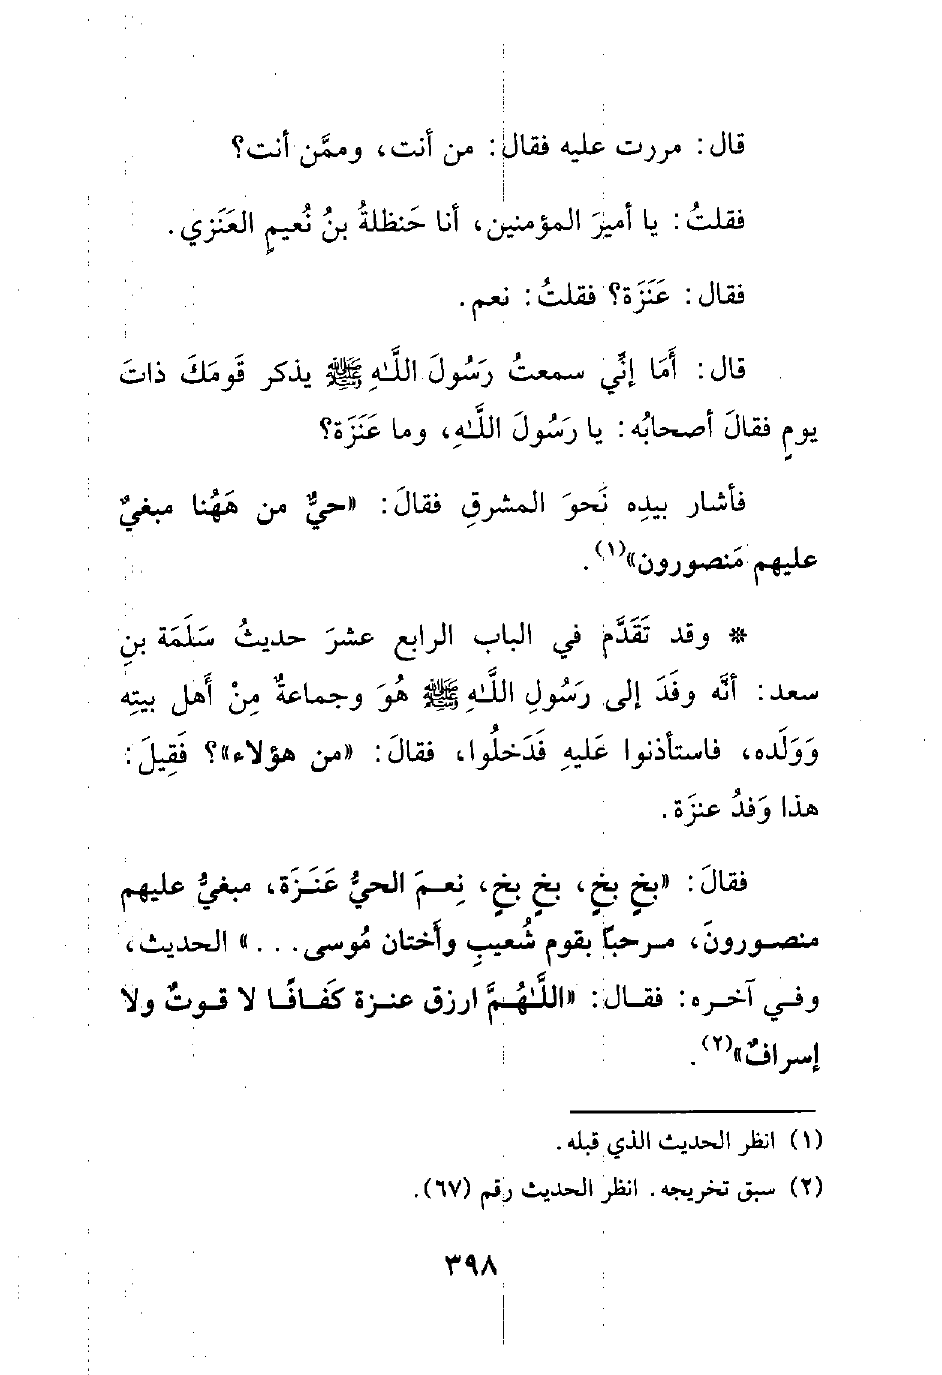 قال: مررت عليه فقال: من أنت، وممَّن أنت؟
فقلتُ: يا أميرَ المؤمنين، أنا حَنظلةُ بنُ نُعيمٍ العَنَزي.
فقال: عَنَزَة؟ فقلتُ: نعم.
قال: أَمَا إنِّي سمعتُ رَسُولَ اللَّهِ ﷺ يذكر قَومَكَ ذاتَ
يومٍ فقالَ أصحابُه: يا رَسُولَ اللَّهِ، وما عَنَزَة؟
فأشار بيدِه نَحوَ المشرقِ فقالَ: «حيٌّ من هَهُنا مبغيٌّ
عليهم مَنصورون»(١).
* وقد تَقَدَّم في الباب الرابع عشرَ حديثُ سَلَمَة بنِ
سعد: أنَّه وفَدَ إلى رَسُولِ اللَّهِ ﷺ هُوَ وجماعةٌ مِنْ أَهل بيتِه
وَوَلَده، فاستأذنوا عَليهِ فَدَخلُوا، فقالَ: «من هؤلاء»؟ فَقِيلَ:
هذا وَفدُ عنزَة.
فقالَ: «بخٍ بخٍ، بخٍ بخٍ، نِعمَ الحيُّ عَنَزَة، مبغيٌّ عليهم
منصورونَ، مرحبًا بقوم شُعيبِ وأَختان مُوسى...» الحديث،
وفي آخره: فقال: «اللَّهُمَّ ارزق عنزة كَفافًا لا قوتٌ ولا
إسرافٌ»(٢).
(١) انظر الحديث الذي قبله.
(٢) سبق تخريجه. انظر الحديث رقم (٦٧).
٣٩٨